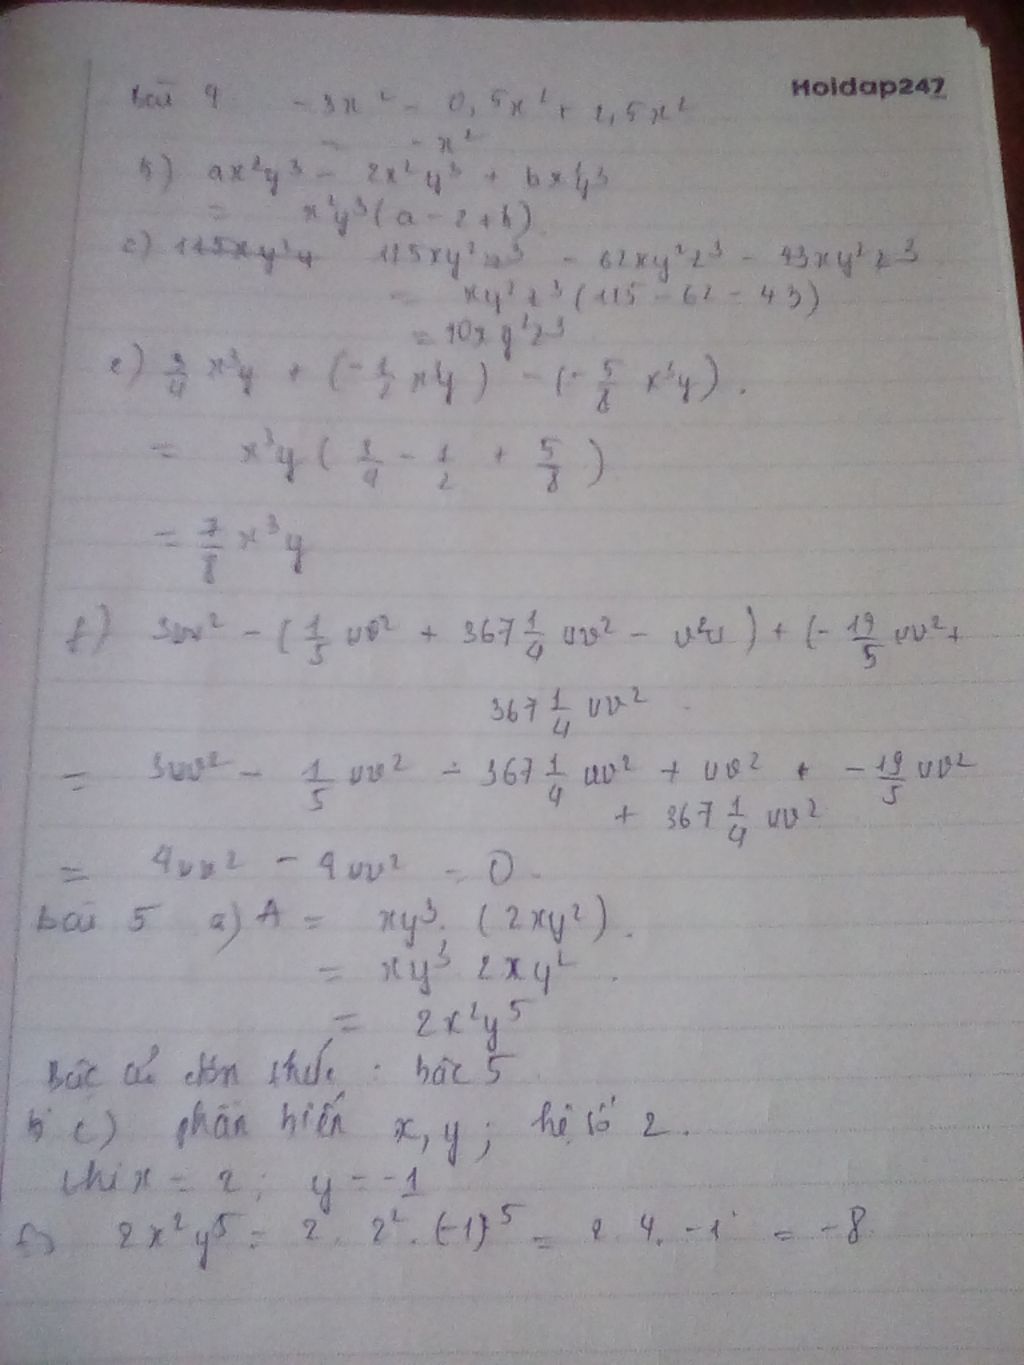 Hoidap247
Bài 4 - 3x² - 0,5x² + 2,5x²
= - x²
b) ax²y³ - 2x²y³ + bx²y³
= x²y³(a - 2 + b)
c) 115xy²z³ - 62xy²z³ - 43xy²z³
= xy²z³(115 - 62 - 43)
= 10xy²z³
e) 3/4 x³y + (- 1/2 x³y) - (- 5/8 x³y).
= x³y ( 3/4 - 1/2 + 5/8 )
= 7/8 x³y
f) 3uv² - ( 1/5 uv² + 367 1/4 uv² - v²u ) + (- 19/5 uv² +
367 1/4 uv²
= 3uv² - 1/5 uv² - 367 1/4 uv² + uv² + - 19/5 uv²
+ 367 1/4 uv²
= 4uv² - 4uv² = 0
Bài 5 a) A = xy³. (2xy²).
= xy³ 2xy².
= 2x²y⁵
Bậc của đơn thức : bậc 5
c) phần biến x, y ; hệ số 2.
x = 2 ; y = -1
2x²y⁵ = 2 . 2² . (-1)⁵ = 2 . 4 . -1 = -8